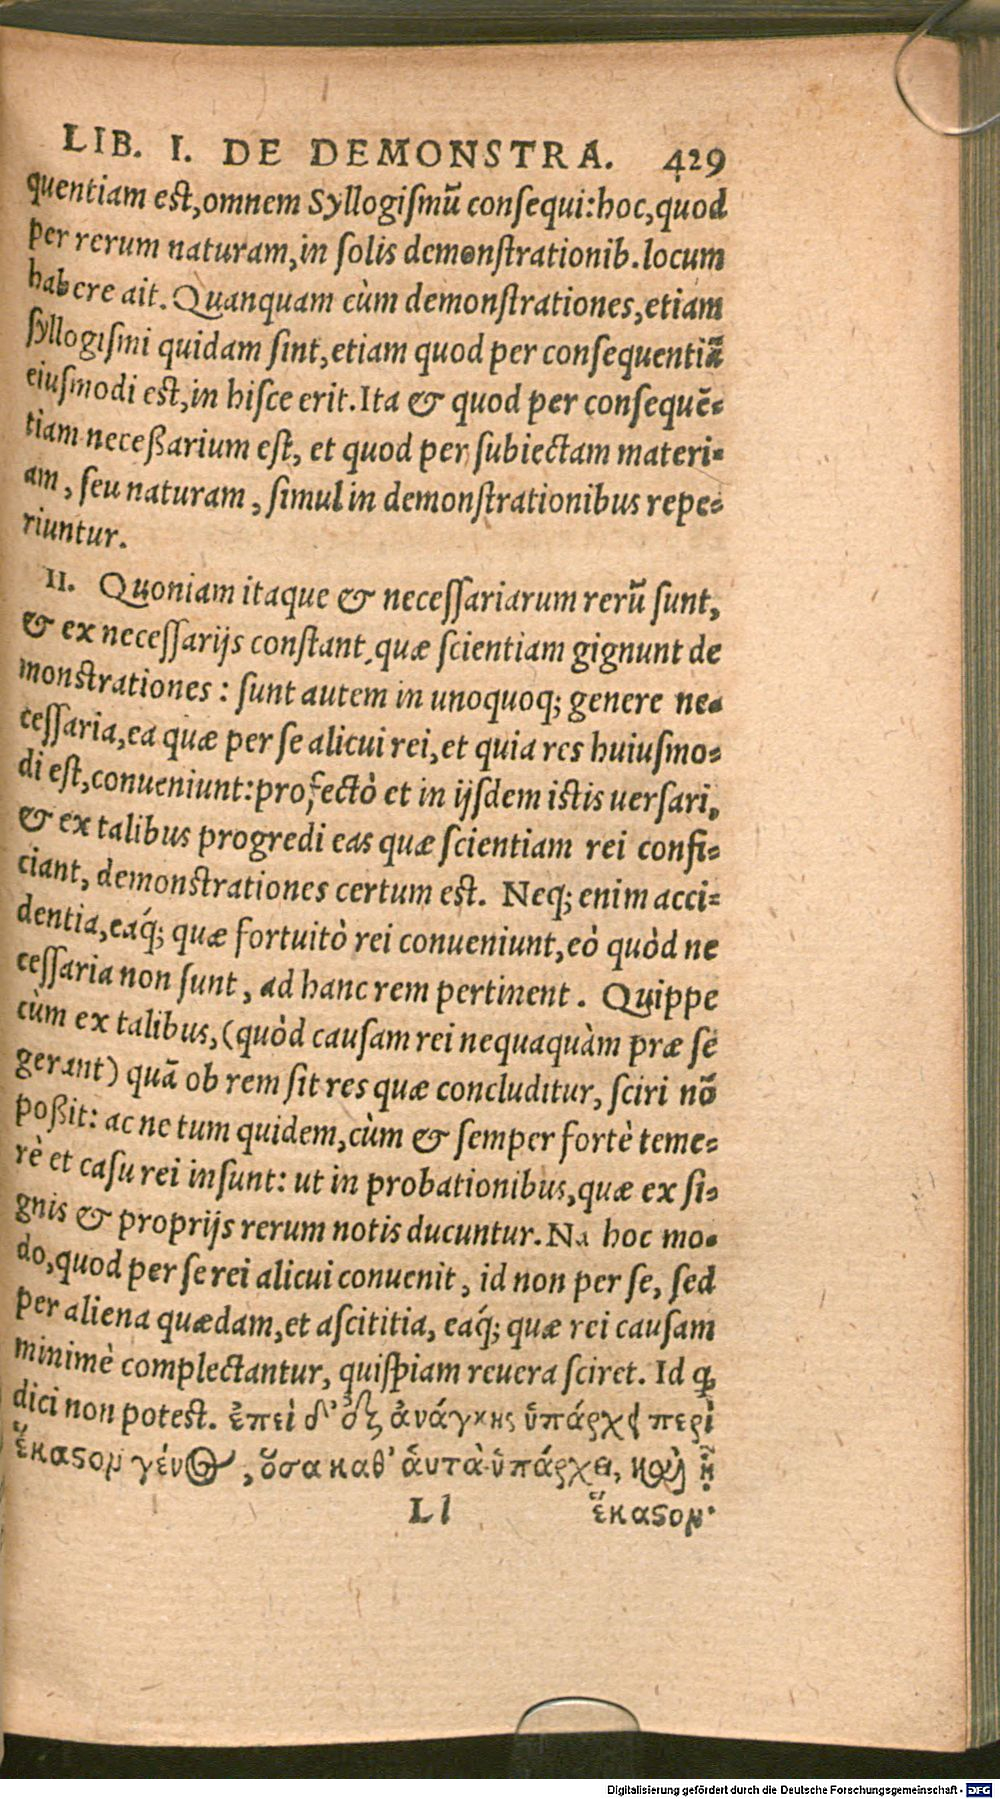 LIB. I. DE DEMONSTRA. 429
quentiam est, omnem Syllogismū consequi: hoc, quod
per rerum naturam, in solis demonstrationib. locum
habere ait. Quanquam cùm demonstrationes, etiam
syllogismi quidam sint, etiam quod per consequentiā
eiusmodi est, in hisce erit. Ita & quod per consequē-
tiam neceßarium est, et quod per subiectam materi-
am, seu naturam, simul in demonstrationibus repe-
riuntur.
II. Quoniam itaque & necessariarum rerū sunt,
& ex necessarijs constant, quæ scientiam gignunt de
monstrationes: sunt autem in unoquoq; genere ne-
cessaria, ea quæ per se alicui rei, et quia res huiusmo-
di est, conueniunt: profectò et in ijsdem istis uersari,
& ex talibus progredi eas quæ scientiam rei confi-
ciant, demonstrationes certum est. Neq; enim acci-
dentia, eaq́; quæ fortuitò rei conueniunt, eò quòd ne
cessaria non sunt, ad hanc rem pertinent. Quippe
cùm ex talibus, (quòd causam rei nequaquàm præ se
gerant) quā ob rem sit res quæ concluditur, sciri nō
poßit: ac ne tum quidem, cùm & semper fortè teme-
rè et casu rei insunt: ut in probationibus, quæ ex si-
gnis & proprijs rerum notis ducuntur. Na hoc mo-
do, quod per se rei alicui conuenit, id non per se, sed
per aliena quædam, et ascititia, eaq́; quæ rei causam
minimè complectantur, quispiam reuera sciret. Id ꝗ
dici non potest. ἐπεὶ δ' ἐξ ἀνάγκης ὑπάρχει περὶ
ἕκαστομ γένος, ὅσα καθ' ἁυτὰ ὑπάρχει, καὶ ᾗ
Ll ἕκαστομ·
Digitalisierung gefördert durch die Deutsche Forschungsgemeinschaft - DFG